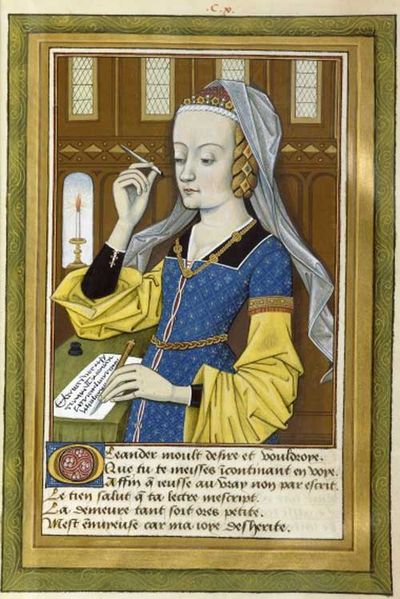 Leander moult desire et vouldroye.
Que tu te meisses ĩcontinant en voye.
Affin q̃ ieusse au vray non par escrit.
Le tien salut q̃ ta lectre mescript.
La demeure tant soit ores petite.
Mest ẽnuyeuse car ma ioye desherite.